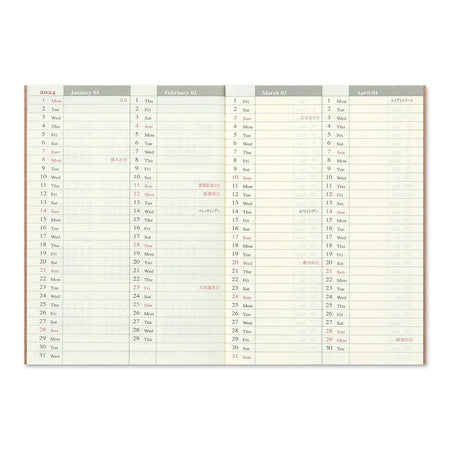 2024 January 01
1 Mon 元日
2 Tue
3 Wed
4 Thu
5 Fri
6 Sat
7 Sun
8 Mon 成人の日
9 Tue
10 Wed
11 Thu
12 Fri
13 Sat
14 Sun
15 Mon
16 Tue
17 Wed
18 Thu
19 Fri
20 Sat
21 Sun
22 Mon
23 Tue
24 Wed
25 Thu
26 Fri
27 Sat
28 Sun
29 Mon
30 Tue
31 Wed
February 02
1 Thu
2 Fri
3 Sat
4 Sun
5 Mon
6 Tue
7 Wed
8 Thu
9 Fri
10 Sat
11 Sun 建国記念の日
12 Mon 振替休日
13 Tue
14 Wed バレンタインデー
15 Thu
16 Fri
17 Sat
18 Sun
19 Mon
20 Tue
21 Wed
22 Thu
23 Fri 天皇誕生日
24 Sat
25 Sun
26 Mon
27 Tue
28 Wed
29 Thu
March 03
1 Fri
2 Sat
3 Sun ひなまつり
4 Mon
5 Tue
6 Wed
7 Thu
8 Fri
9 Sat
10 Sun
11 Mon
12 Tue
13 Wed
14 Thu ホワイトデー
15 Fri
16 Sat
17 Sun
18 Mon
19 Tue
20 Wed 春分の日
21 Thu
22 Fri
23 Sat
24 Sun
25 Mon
26 Tue
27 Wed
28 Thu
29 Fri
30 Sat
31 Sun
April 04
1 Mon エイプリルフール
2 Tue
3 Wed
4 Thu
5 Fri
6 Sat
7 Sun
8 Mon
9 Tue
10 Wed
11 Thu
12 Fri
13 Sat
14 Sun
15 Mon
16 Tue
17 Wed
18 Thu
19 Fri
20 Sat
21 Sun
22 Mon
23 Tue
24 Wed
25 Thu
26 Fri
27 Sat
28 Sun
29 Mon 昭和の日
30 Tue